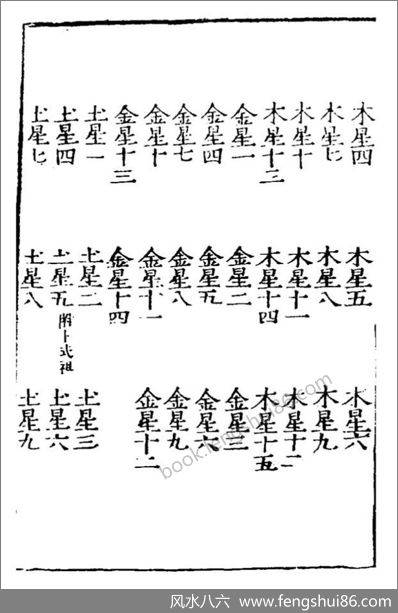 木星四 木星五 木星六
木星七 木星八 木星九
木星十 木星十一 木星十二
木星十三 木星十四 木星十五
金星一 金星二 金星三
金星四 金星五 金星六
金星七 金星八 金星九
金星十 金星十一 金星十二
金星十三 金星十四
土星一 土星二 土星三
土星四 土星五 附卜式祖 土星六
土星七 土星八 土星九
book.fengshui86.com
风水八六 www.fengshui86.com